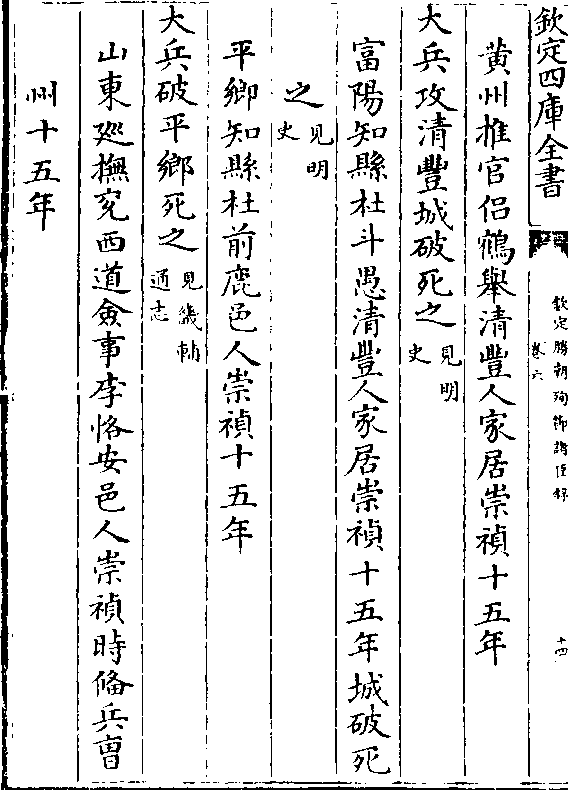 欽定四庫全書
欽定勝朝殉節諸臣錄
卷六
十四
黄州推官侣鶴舉清豐人家居崇禎十五年
大兵攻清豐城破死之見明史
富陽知縣杜斗愚清豐人家居崇禎十五年城破死
之見明史
平鄉知縣杜前鹿邑人崇禎十五年
大兵破平鄉死之見畿輔通志
山東廵撫兖西道僉事李恪安邑人崇禎時備兵曹
州十五年